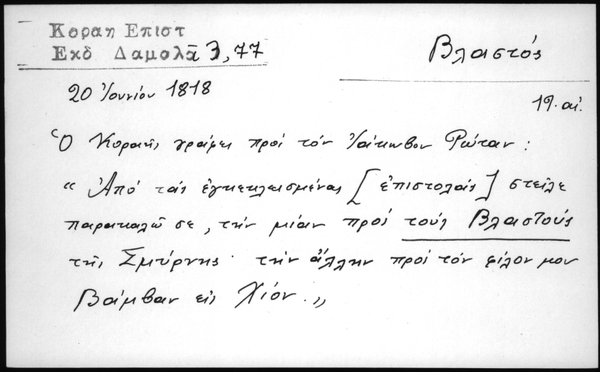 Κοραη Επιστ
Εκδ Δαμαλᾶ 3, 77
Βλαστός
20 Ἰουνίου 1818
19. αἰ.
Ὁ Κοραῆς γράφει πρὸς τὸν Ἰάκωβον Ρώταν:
"Ἀπὸ τὰς ἐγκεκλεισμένας [ἐπιστολάς] στεῖλε
παρακαλῶ σε, τὴν μίαν πρὸς τοὺς Βλαστοὺς
τῆς Σμύρνης· τὴν ἄλλην πρὸς τὸν φίλον μου
Βάμβαν εἰς Χίον."